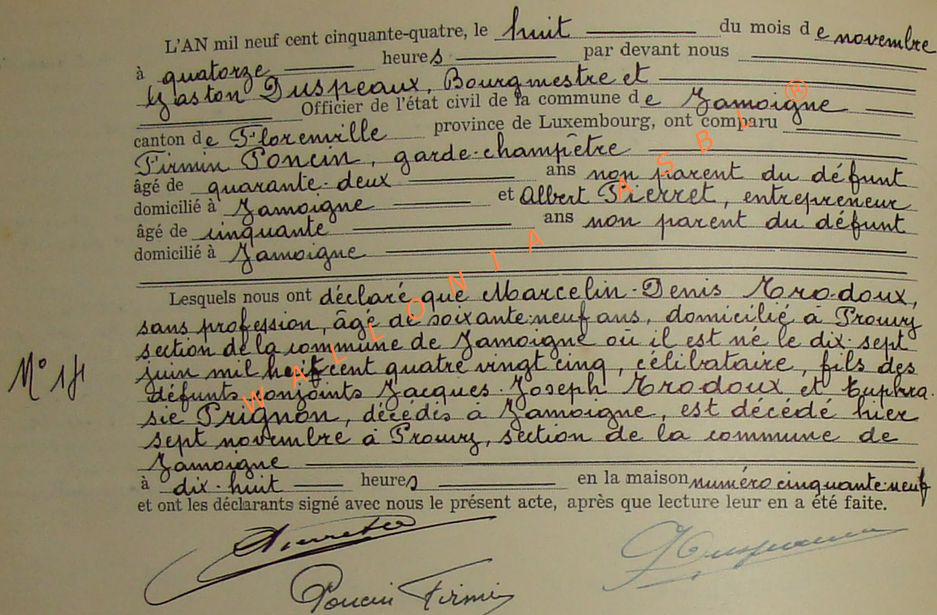 L'AN mil neuf cent cinquante-quatre, le huit du mois de novembre
à quatorze heures par devant nous
Gaston Duspeaux, Bourgmestre et
Officier de l'état civil de la commune de Jamoigne
canton de Florenville province de Luxembourg, ont comparu
Firmin Poncin, garde-champêtre
âgé de quarante-deux ans non parent du défunt
domicilié à Jamoigne et Albert Pierret, entrepreneur
âgé de cinquante ans non parent du défunt
domicilié à Jamoigne
Lesquels nous ont déclaré que Marcelin-Denis Trodoux,
sans profession, âgé de soixante-neuf ans, domicilié à Prouvy
section de la commune de Jamoigne où il est né le dix-sept
juin mil huit cent quatre vingt cinq, célibataire, fils des
défunts conjoints Jacques-Joseph Trodoux et Euphra-
sie Prignon, décédés à Jamoigne, est décédé hier
sept novembre à Prouvy, section de la commune de
Jamoigne
à dix-huit heures en la maison numéro cinquante-neuf
et ont les déclarants signé avec nous le présent acte, après que lecture leur en a été faite.
N° 14
Poncin Firmin
WALLONIA ASBL ®